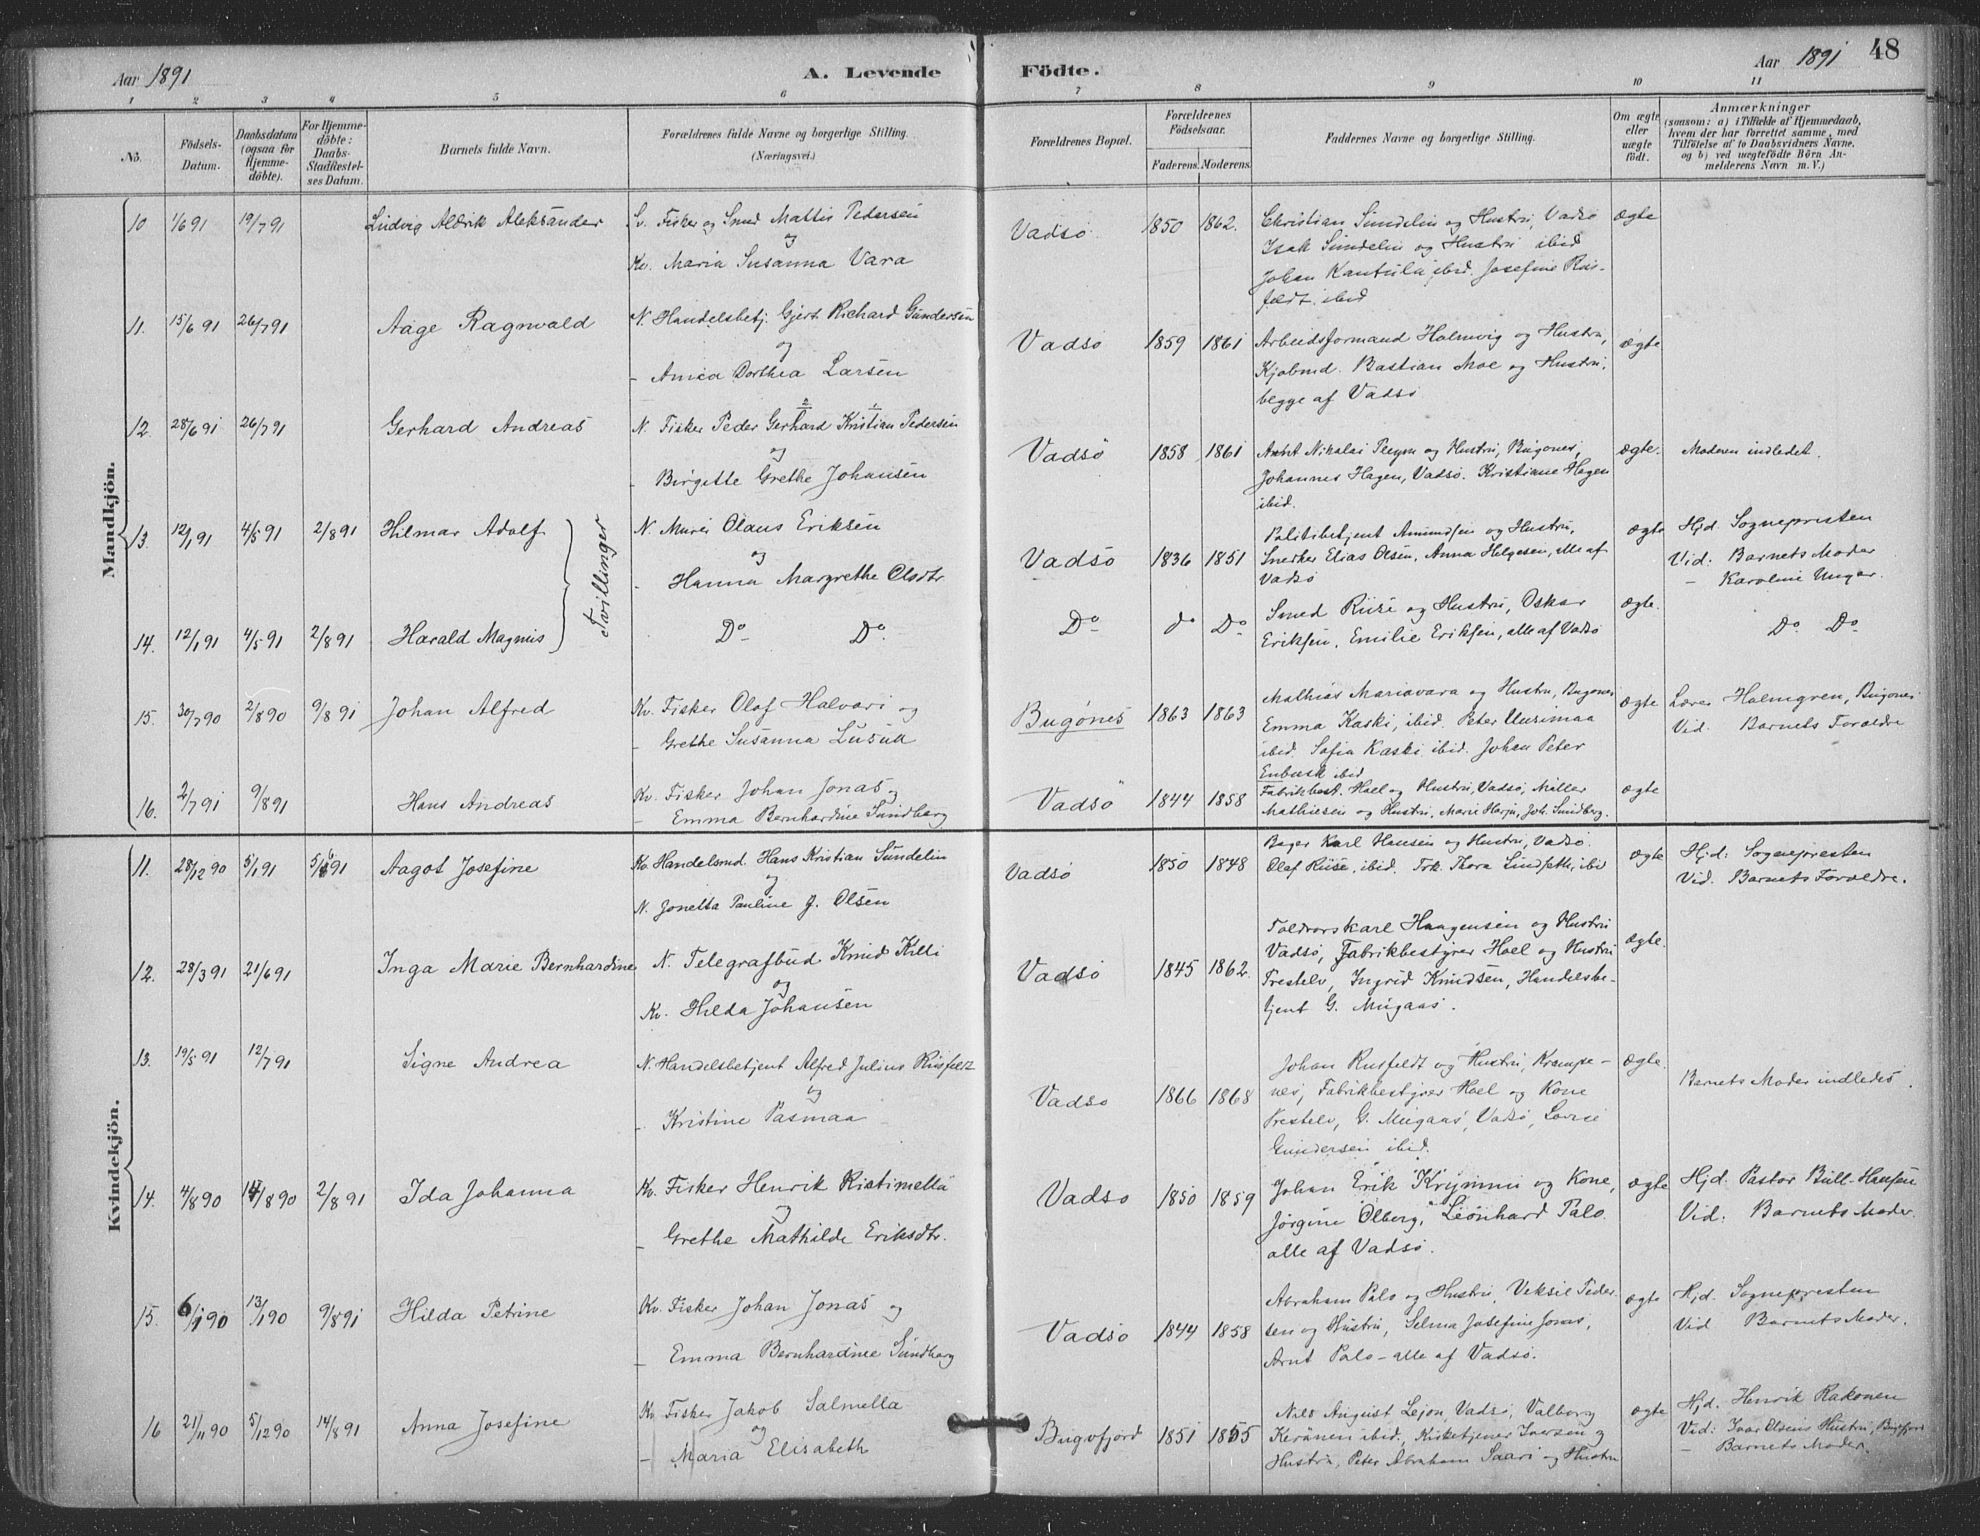 Aar 1891
A. Levende Födte.
Aar 1891
48
1 2 3 4 5 6 7 8 9 10 11
No.
Födsels-
Datum.
Daabsdatum
(ogsaa for
Hjemme-
döbte).
For Hjemme-
döbte:
Daabs-
Stadfæstel-
ses Datum.
Barnets fulde Navn.
Forældrenes fulde Navne og borgerlige Stilling.
(Næringsvei.)
Forældrenes Bopæl.
Forældrenes
Födselsaar.
Faderens. Moderens.
Faddernes Navne og borgerlige Stilling.
Om ægte
eller
uægte
födt.
Anmærkninger
(saasom: a) i Tilfælde af Hjemmedaab,
hvem der har forrettet samme, med
Tilföielse af to Daabsvidners Navne,
og b) ved uægtefödte Börn An-
melderens Navn m. V.)
Mandkjön.
10 1/6 91 19/7 91 Ludvig Aldrik Aleksander
Sv. Fisker og Smed Mattis Pedersen
og
Kv. Maria Susanna Vara
Vadsø 1850 1862.
Christian Sundelin og Hustru, Vadsø
Isak Sundelin og Hustru ibid
Johan Kantula ibid. Josefine Ris-
feldt ibid
ægte
11. 15/6 91 26/7 91 Aage Ragnvald
N. Handelsbetj. Gjert Richard Gundersen
og
- Anna Dorthea Larsen
Vadsø 1859 1861
Arbeidsformand Holmvig og Hustru,
Kjøbmd. Bastian Moe og Hustru,
begge af Vadsø
ægte
12. 28/6 91 26/7 91 Gerhard Andreas
N. Fisker Peder Gerhard Kristian Pedersen
og
- Birgitte Grethe Johansen
Vadsø 1858 1861
Arnt Nikolai og Hustru, Bugønes,
Johannes Hagen, Vadsø. Kristiane Hagen
ibid.
ægte.
Moderen indledet.
13. 12/1 91 4/5 91 2/8 91 Hilmar Adolf
Tvillinger
N. Murer Olaus Eriksen
og
- Hanna Margrethe Olsdtr
Vadsø 1836 1851
Politibetjent Amundsen og Hustru,
Snedker Elias Olsen, Anna Helgesen, alle af
Vadsø
ægte
Hjd. Sognepresten
Vid: Barnets Moder
- Karoline Unger.
14. 12/1 91 4/5 91 2/8 91 Harald Magnus
Do Do
Do do Do
Smed Riise og Hustru, Oskar
Eriksen, Emilie Eriksen, alle af Vadsø
ægte.
Do Do
15. 30/7 90 2/8 90 9/8 91 Johan Alfred
Kv. Fisker Olaf Halvari og
- Grethe Susanna
Bugønes 1863 1863
Mathias Mariavara og Hustru, Bugønes
Emma Kaski, ibid. Peter Uusimaa
ibid. Sofia Kaski ibid. Johan Peter
Enbusk ibid
ægte
Lærer Holmgren, Bugønes
Vid. Barnets Forældre
16. 2/7 91 9/8 91 Hans Andreas
Kv. Fisker Johan Jonas og
- Emma Bernhardine Sundberg
Vadsø 1844 1858
Fabrikbest. Hoel og Hustru, Vadsø, Møller
Mathiesen og Hustru, Marie Harju, Joh. Sundberg.
ægte
Kvindekjön.
11. 28/12 90 5/1 91 91 Aagot Josefine
Kv. Handelsmd. Hans Kristian Sundelin
og
N. Jonetta Pauline J. Olsen
Vadsø 1850 1848
Bager Karl Hansen og Hustru, Vadsø.
Olaf Riise, ibid. Frk. Thora Lindseth, ibid
ægte
Hjd: Sognepresten
Vid. Barnets Forældre.
12. 28/3 91 21/6 91 Inga Marie Bernhardine
N. Telegrafbud Knud Killi
og
Kv. Hilda Johansen
Vadsø 1845 1862.
Toldrorskarl Haagensen og Hustru
Vadsø, Fabrikbestyrer Hoel og Hustru
Prestelv, Ingrid Knudsen, Handelsbe-
tjent G. Mugaas.
ægte.
13. 19/5 91 12/7 91 Signe Andrea
N. Handelsbetjent Alfred Julius Risfeldt
og
- Kristine Pasmaa
Vadsø 1866 1868
Johan Rusfeldt og Hustru, Krampe-
nes, Fabrikbestyrer Hoel og Kone
Prestelv, G. Mugaas, Vadsø, Lovise
Gundersen ibid.
ægte.
Barnets Moder indledes.
14. 4/8 90 /8 90 2/8 91 Ida Johanna
Kv. Fisker Henrik Ristimella
og
- Grethe Mathilde Eriksdtr.
Vadsø 1850 1859
Johan Erik Krymmi og Kone,
Jørgine Olberg, Leonhard Palo.
alle af Vadsø.
ægte
Hjd. Pastor Bull-Hansen
Vid: Barnets Moder.
15. 6/1 90 13/1 90 9/8 91 Hilda Petrine
Kv. Fisker Johan Jonas og
- Emma Bernhardine Sundberg
Vadsø 1844 1858
Abraham Palo og Hustru, Veksil Peder-
sen og Hustru, Selma Josefine Jonas,
Arnt Palo - alle af Vadsø.
ægte
Hjd. Sognepresten
Vid Barnets Moder.
16 21/11 90 5/12 90 14/8 91 Anna Josefine
Kv. Fisker Jakob Salmella
og
- Maria Elisabeth
Bugøfjord 1851 1855
Nils August Lejon, Vadsø, Valborg
Keränen ibid., Kirketjener Iversen og
Hustru, Peter Abraham Saari og Hustru
ægte
Hjd. Henrik Rakonen
Vid: Ivar Olsens Hustru, Bugøfjord
- Barnets Moder.